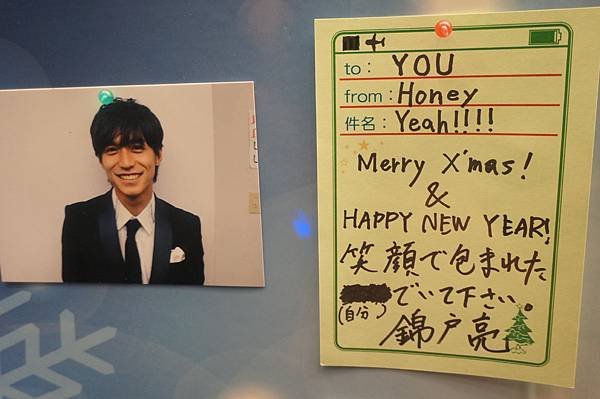 to: YOU
from: Honey
件名: Yeah!!!!
Merry X'mas!
&
HAPPY NEW YEAR!
笑顔で包まれた
でいて下さい。
(自分)
錦戸亮